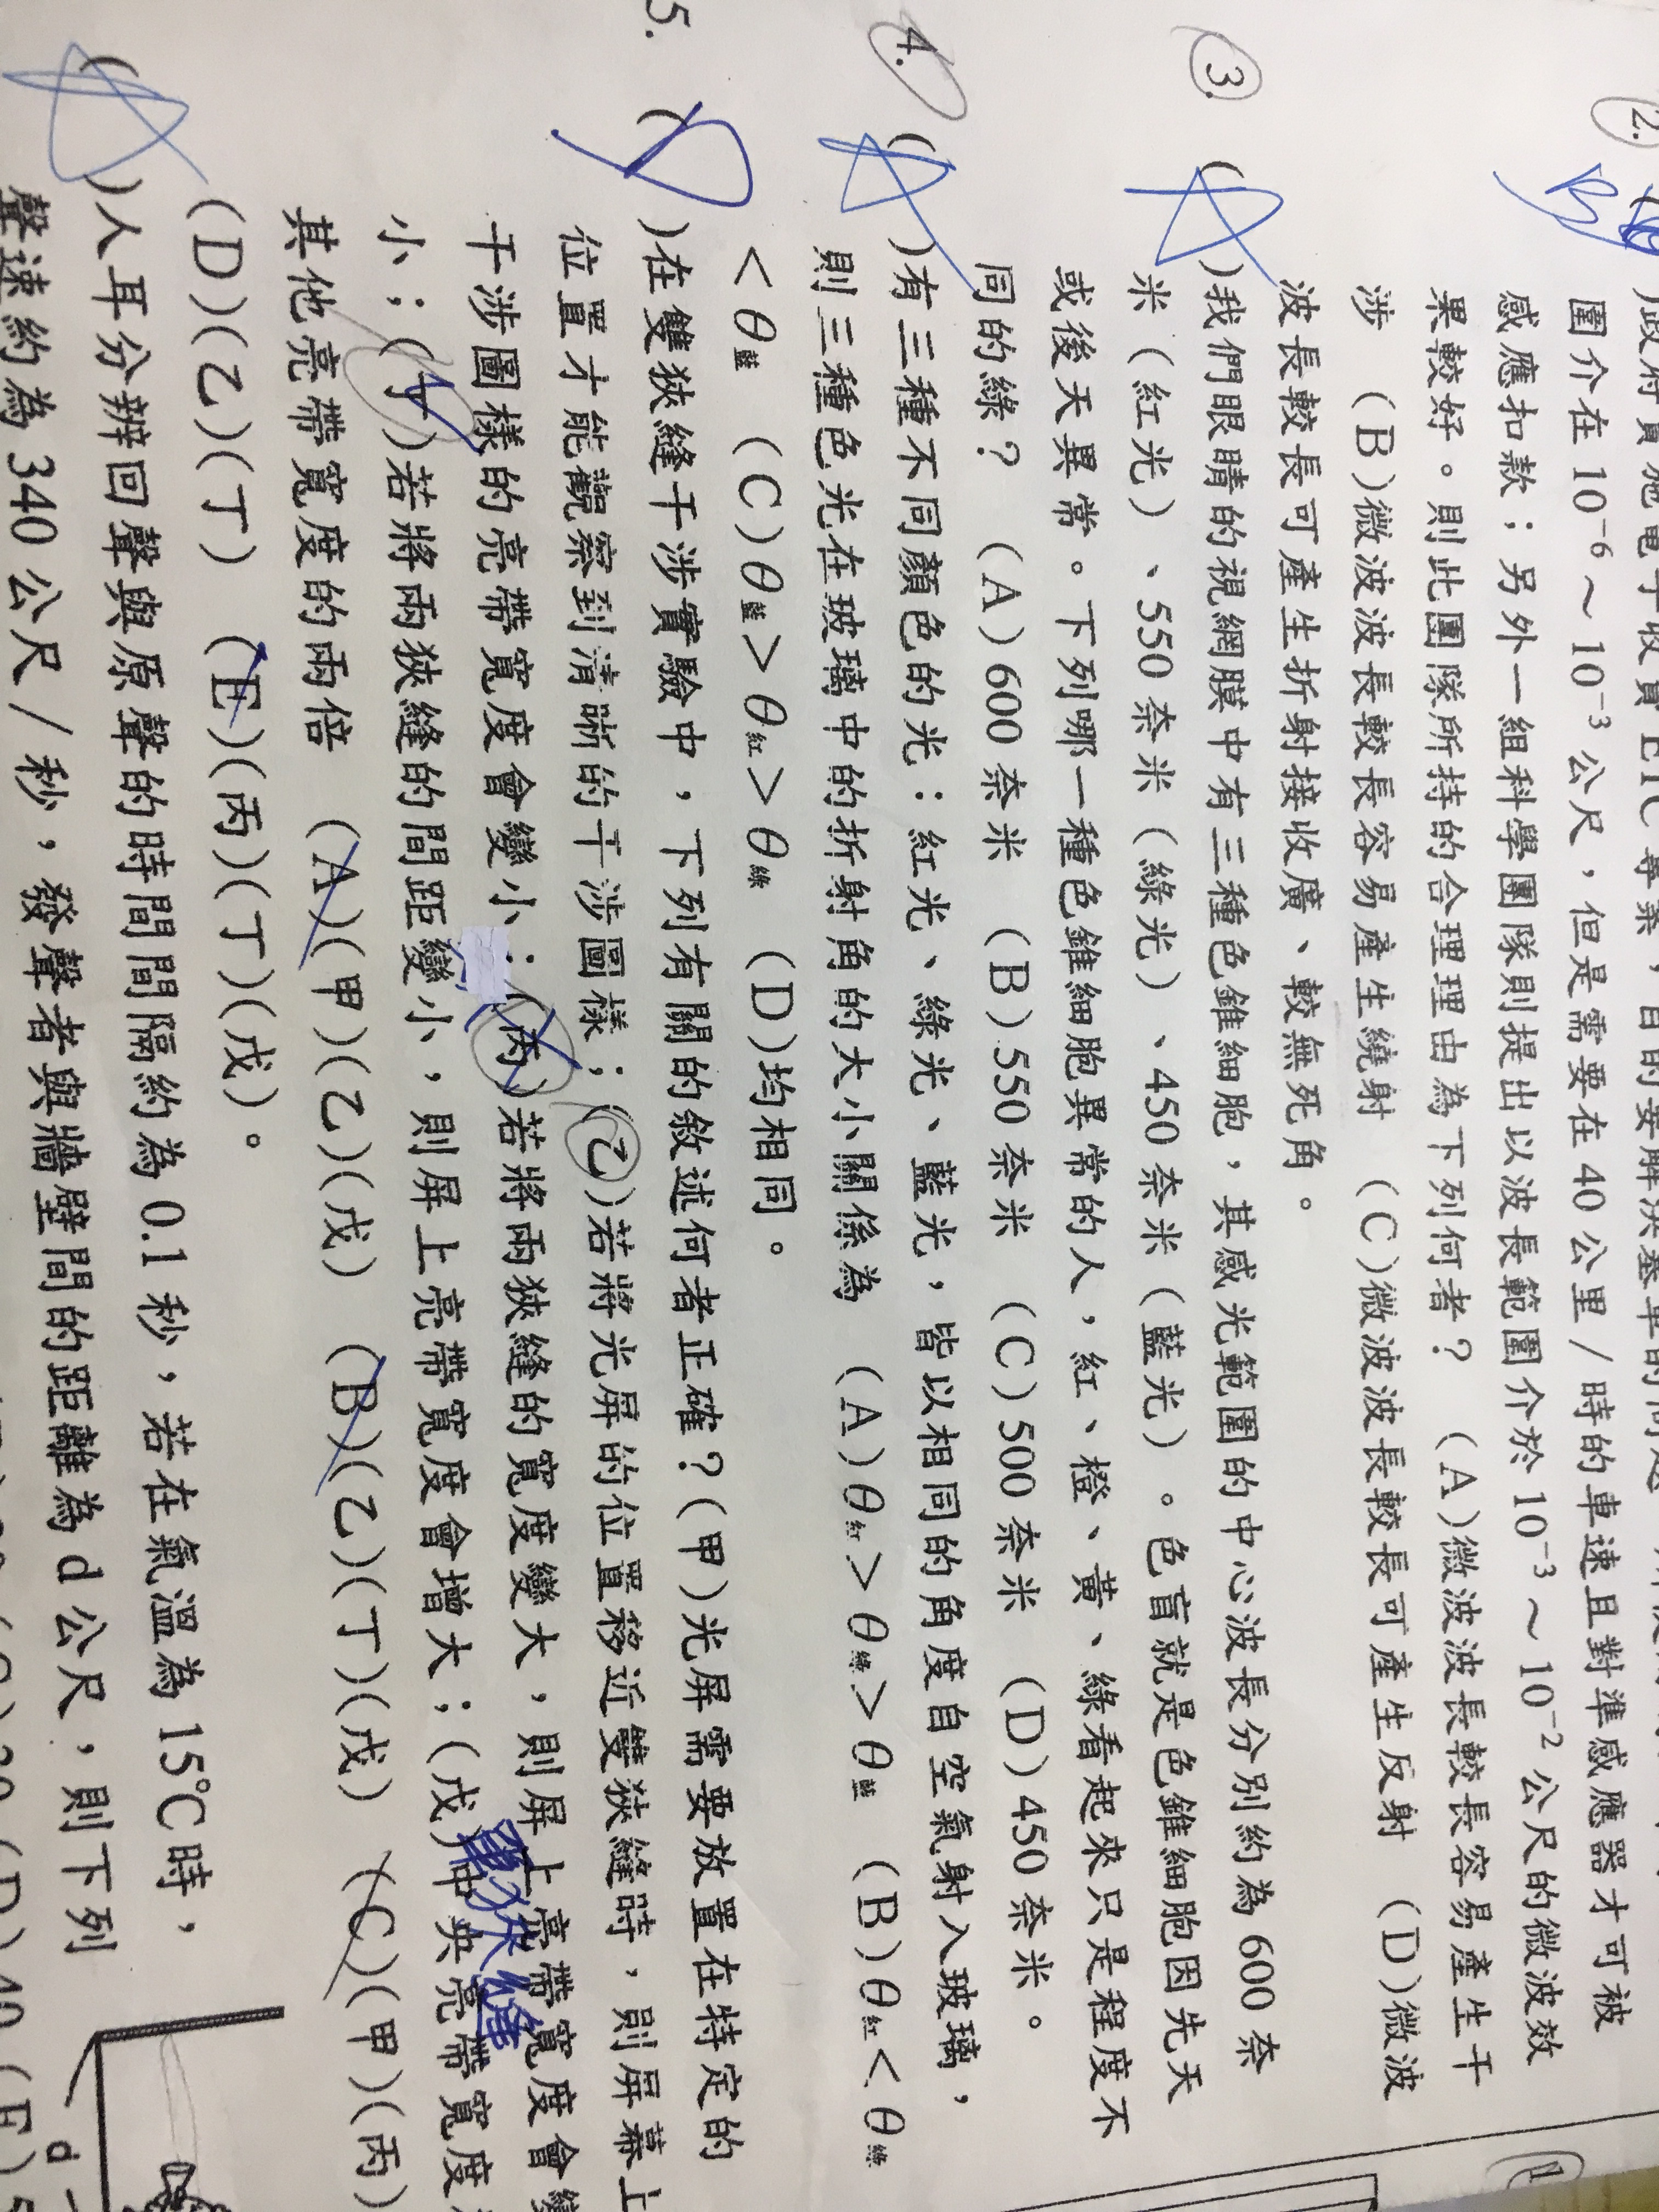 2. ( B )政府實施電子收費ETC專案,目的要解決塞車的問題
圍介在 10⁻⁶～10⁻³ 公尺,但是需要在 40 公里/時的車速且對準感應器才可被
感應扣款;另外一組科學團隊則提出以波長範圍介於 10⁻³～10⁻² 公尺的微波效
果較好。則此團隊所持的合理理由為下列何者? (A)微波波長較長容易產生干
涉 (B)微波波長較長容易產生繞射 (C)微波波長較長可產生反射 (D)微波
波長較長可產生折射接收廣、較無死角。
3. ( A )我們眼睛的視網膜中有三種色錐細胞,其感光範圍的中心波長分別約為 600 奈
米(紅光)、550 奈米(綠光)、450 奈米(藍光)。色盲就是色錐細胞因先天
或後天異常。下列哪一種色錐細胞異常的人,紅、橙、黃、綠看起來只是程度不
同的綠? (A)600 奈米 (B)550 奈米 (C)500 奈米 (D)450 奈米。
4. ( A )有三種不同顏色的光:紅光、綠光、藍光,皆以相同的角度自空氣射入玻璃,
則三種色光在玻璃中的折射角的大小關係為 (A)θ紅>θ綠>θ藍 (B)θ紅<θ綠
<θ藍 (C)θ藍>θ紅>θ綠 (D)均相同。
5. ( D )在雙狹縫干涉實驗中,下列有關的敘述何者正確?(甲)光屏需要放置在特定的
位置才能觀察到清晰的干涉圖樣;(乙)若將光屏的位置移近雙狹縫時,則屏幕上
干涉圖樣的亮帶寬度會變小;(丙)若將兩狹縫的寬度變大,則屏上亮帶寬度會變
小;(丁)若將兩狹縫的間距變小,則屏上亮帶寬度會增大;(戊)中央亮帶寬度
單狹縫
其他亮帶寬度的兩倍 (A)(甲)(乙)(戊) (B)(乙)(丁)(戊) (C)(甲)(丙)
(D)(乙)(丁) (E)(丙)(丁)(戊)。
( A )人耳分辨回聲與原聲的時間間隔約為 0.1 秒,若在氣溫為 15℃時,
聲速約為 340 公尺/秒,發聲者與牆壁間的距離為 d 公尺,則下列
d